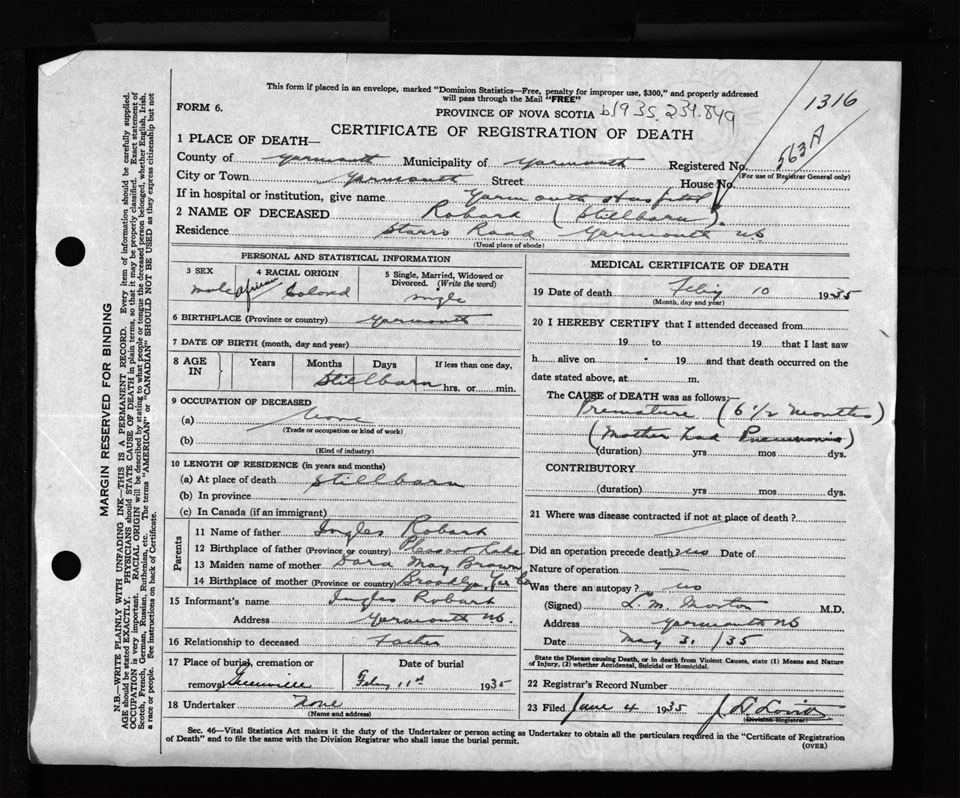 This form if placed in an envelope, marked "Dominion Statistics—Free, penalty for improper use, $300," and properly addressed
will pass through the Mail "FREE"
1316
FORM 6.
PROVINCE OF NOVA SCOTIA b1935 234.849
CERTIFICATE OF REGISTRATION OF DEATH
563A
1 PLACE OF DEATH—
County of Yarmouth Municipality of Yarmouth Registered No.
(For use of Registrar General only)
City or Town Yarmouth Street House No.
If in hospital or institution, give name Yarmouth Hospital
2 NAME OF DECEASED Robart (Stillborn).
Residence Starrs Road Yarmouth NS
(Usual place of abode)
PERSONAL AND STATISTICAL INFORMATION
3 SEX 4 RACIAL ORIGIN 5 Single, Married, Widowed or
Divorced. (Write the word)
male African Colored single
6 BIRTHPLACE (Province or country) Yarmouth
7 DATE OF BIRTH (month, day and year)
8 AGE
IN
Years Months Days If less than one day,
Stillborn hrs. or min.
9 OCCUPATION OF DECEASED
(a) None
(Trade or occupation or kind of work)
(b)
(Kind of industry)
10 LENGTH OF RESIDENCE (in years and months)
(a) At place of death Stillborn
(b) In province
(c) In Canada (if an immigrant)
Parents
11 Name of father Ingles Robart
12 Birthplace of father (Province or country) Pleasant Lake
13 Maiden name of mother Dora May Brown
14 Birthplace of mother (Province or country) Brooklyn, Yar Co
15 Informant's name Ingles Robart
Address Yarmouth NS.
16 Relationship to deceased Father
17 Place of burial, cremation or
removal Greenville
Date of burial
Feby 11th 1935
18 Undertaker None
(Name and address)
MEDICAL CERTIFICATE OF DEATH
19 Date of death Feby 10 1935
(Month, day and year)
20 I HEREBY CERTIFY that I attended deceased from
19 to 19 that I last saw
h alive on 19 and that death occurred on the
date stated above, at m.
The CAUSE of DEATH was as follows:—
Premature (6 1/2 months)
(Mother had Pneumonia)
(duration) yrs mos dys.
CONTRIBUTORY
(duration) yrs mos dys.
21 Where was disease contracted if not at place of death?
Did an operation precede death? no Date of
Nature of operation —
Was there an autopsy? no
(Signed) L. M. Morton M.D.
Address Yarmouth NS
Date May 31 /35
State the Disease causing Death, or in death from Violent Causes, state (1) Means and Nature
of Injury, (2) whether Accidental, Suicidal or Homicidal.
22 Registrar's Record Number
23 Filed June 4 1935
(Division Registrar)
Sec. 46—Vital Statistics Act makes it the duty of the Undertaker or person acting as Undertaker to obtain all the particulars required in the "Certificate of Registration
of Death" and to file the same with the Division Registrar who shall issue the burial permit.
(OVER)
MARGIN RESERVED FOR BINDING
N.B.—WRITE PLAINLY WITH UNFADING INK—THIS IS A PERMANENT RECORD. Every item of information should be carefully supplied.
AGE should be stated EXACTLY. PHYSICIANS should STATE CAUSE OF DEATH in plain terms, so that it may be properly classified. Exact statement of
OCCUPATION is very important. RACIAL ORIGIN will be described by stating to what people or tongue the deceased person belonged, whether English, Irish,
Scotch, French, German, Russian, Ruthenian, etc. The terms "AMERICAN" or "CANADIAN" SHOULD NOT BE USED as they express citizenship but not
a race or people. See instructions on back of Certificate.